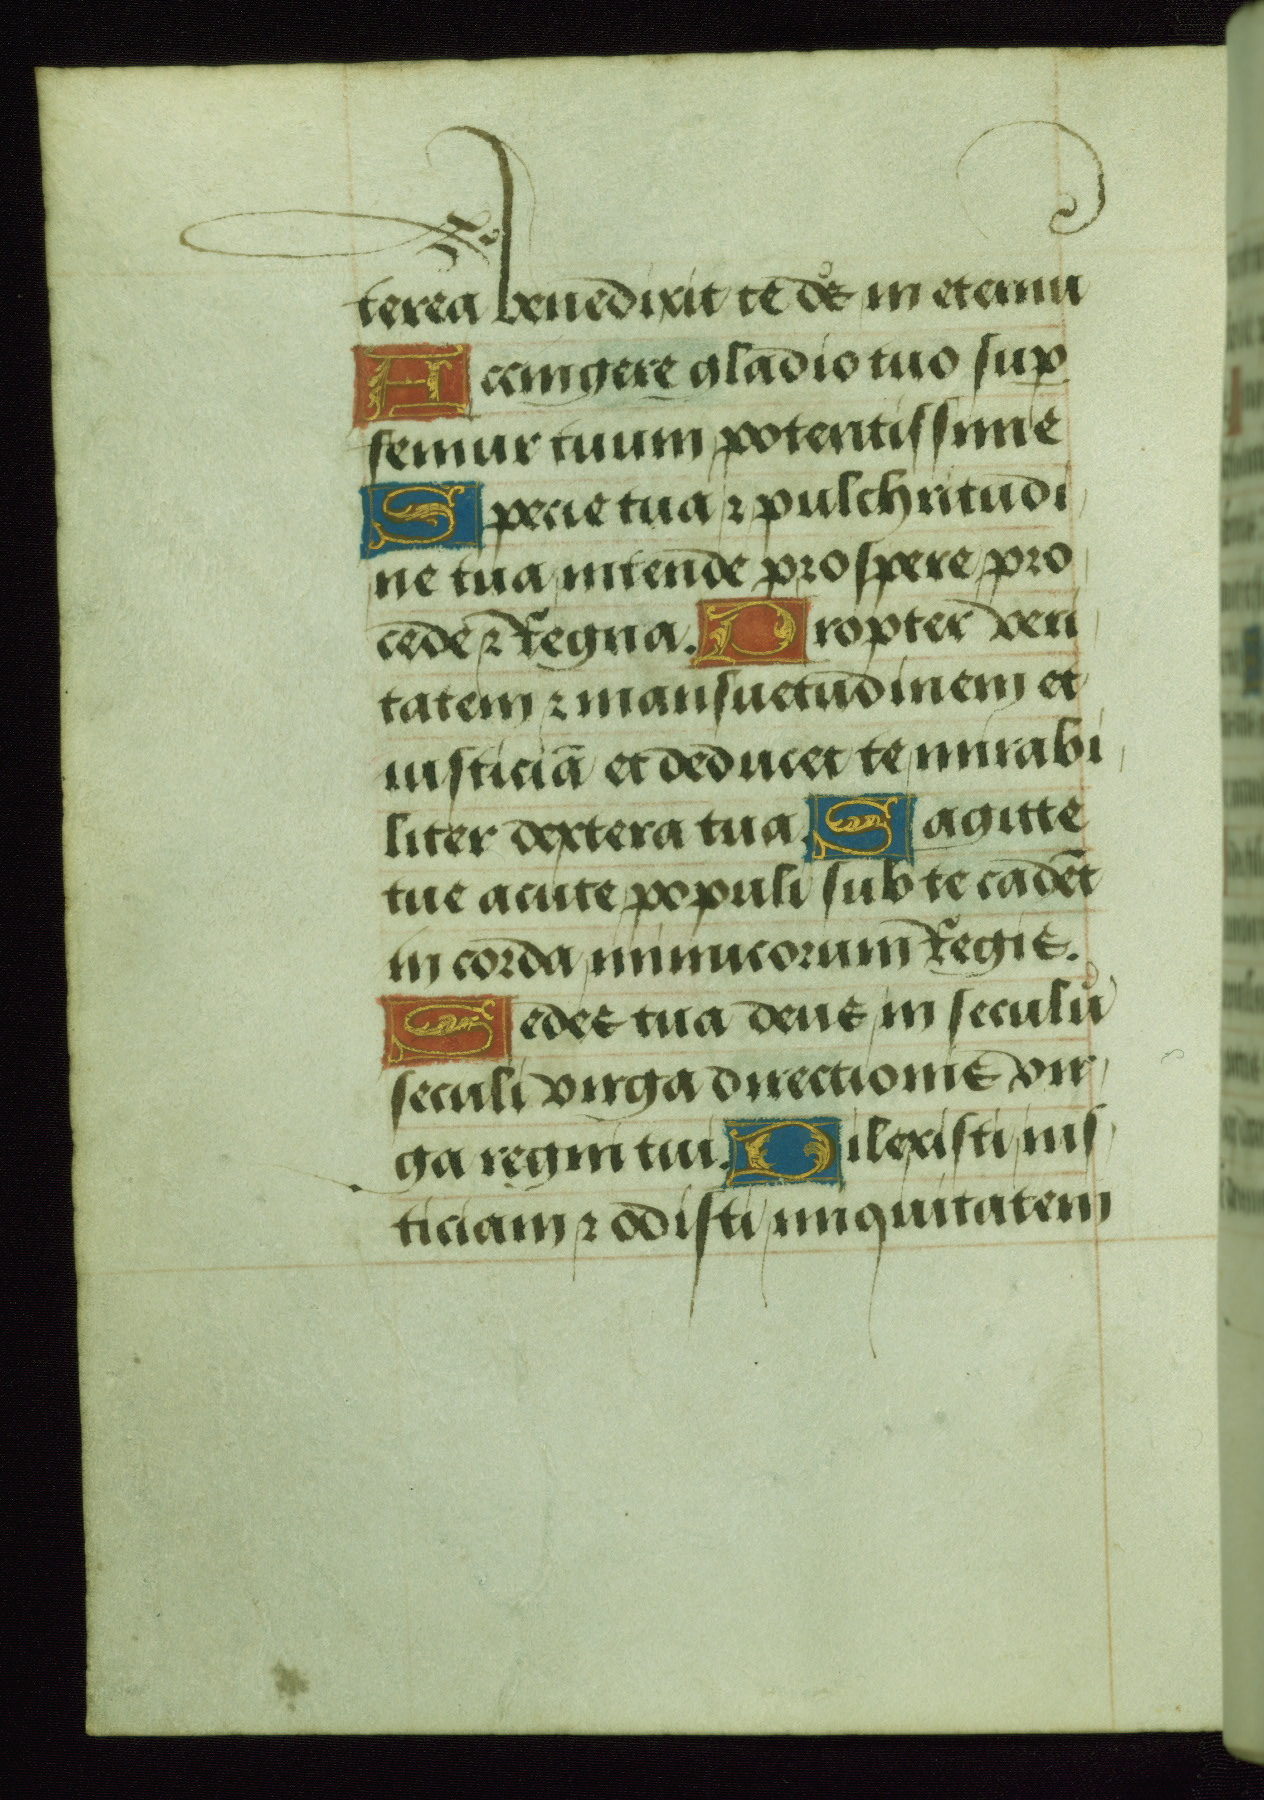 terea benedixit te de⁹ in eternu
Accingere gladio tuo sup
femur tuum potentissime
Specie tua ⁊ pulchritudi
ne tua intende prospere pro
cede ⁊ regna. Propter veri
tatem ⁊ mansuetudinem et
iusticiā et deducet te mirabi
liter dextera tua. Sagitte
tue acute populi sub te cadēt
in corda inimicorum regis.
Sedes tua deus in seculū
seculi virga directionis vir
ga regni tui. Dilexisti ius
ticiam ⁊ odisti iniquitatem